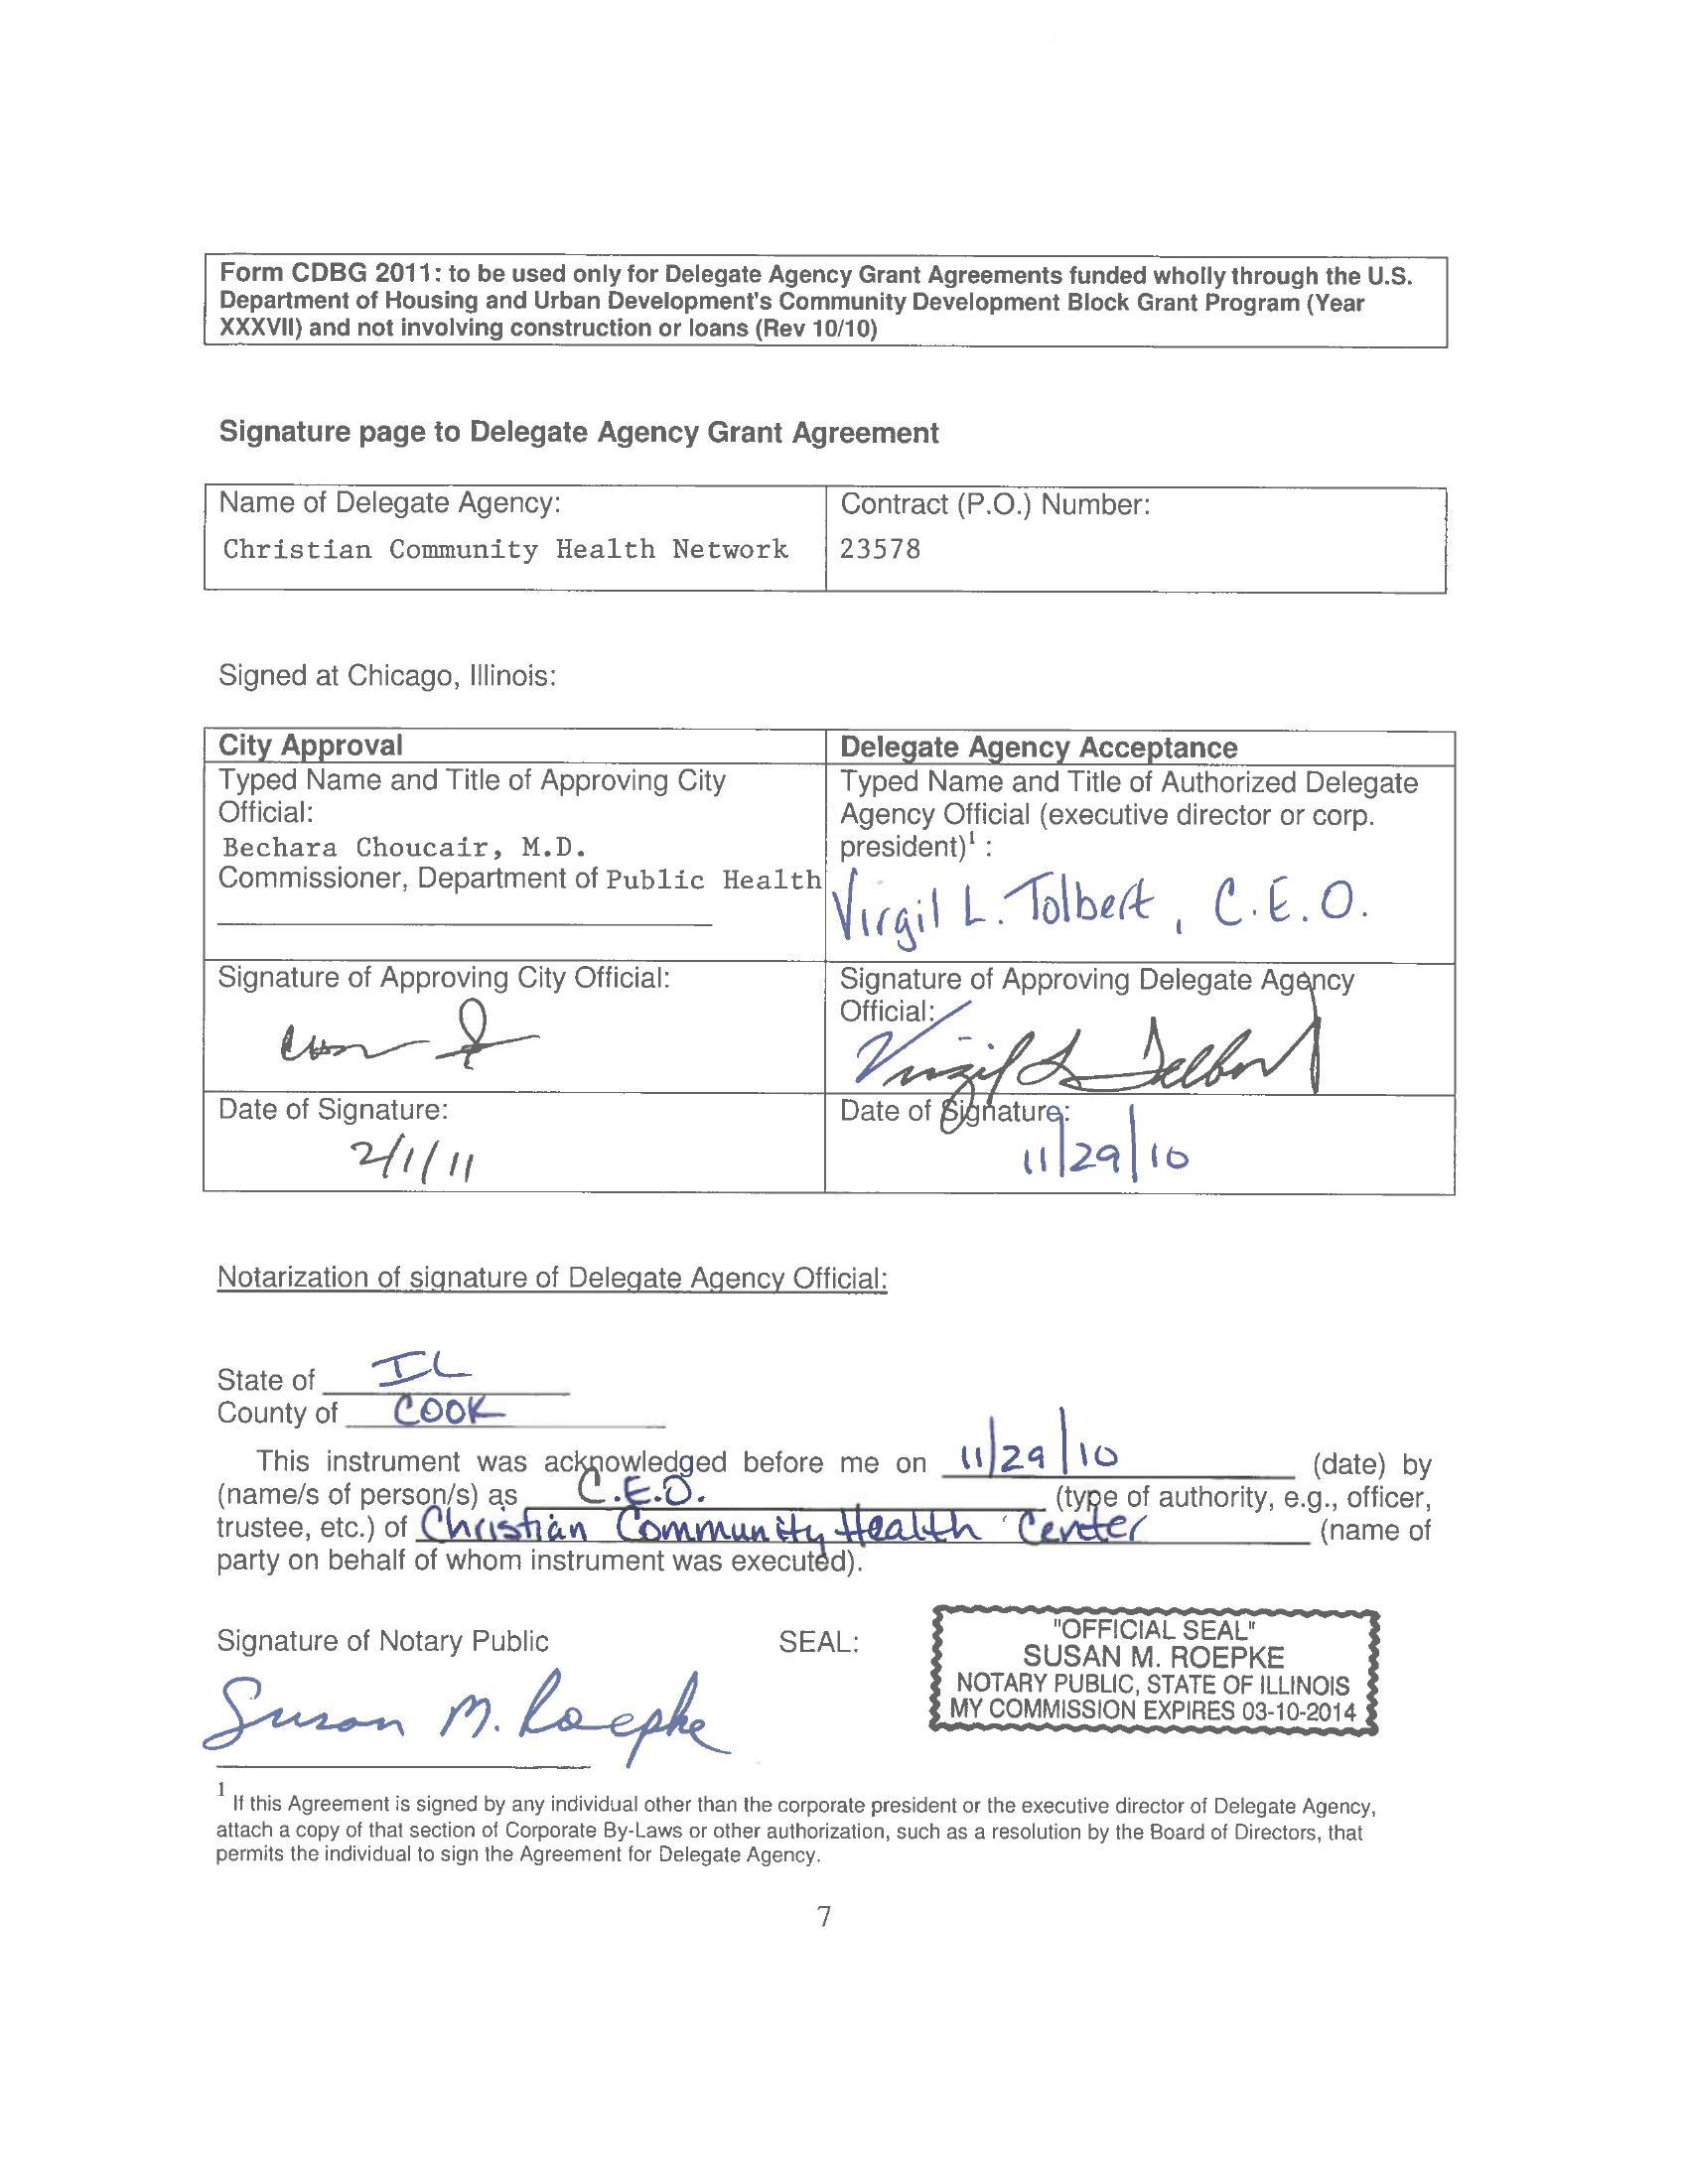 Form CDBG 2011: to be used only for Delegate Agency Grant Agreements funded wholly through the U.S.
Department of Housing and Urban Development's Community Development Block Grant Program (Year
XXXVII) and not involving construction or loans (Rev 10/10)
Signature page to Delegate Agency Grant Agreement
Name of Delegate Agency:
Christian Community Health Network
Contract (P.O.) Number:
23578
Signed at Chicago, Illinois:
City Approval
Typed Name and Title of Approving City
Official:
Bechara Choucair, M.D.
Commissioner, Department of Public Health
Delegate Agency Acceptance
Typed Name and Title of Authorized Delegate
Agency Official (executive director or corp.
president)1 :
Virgil L. Tolbert, C.E.O.
Signature of Approving City Official:
Signature of Approving Delegate Agency
Official:
Virgil L Tolbert
Date of Signature:
2/1/11
Date of Signature:
11/29/10
Notarization of signature of Delegate Agency Official:
State of IL
County of COOK
This instrument was acknowledged before me on 11/29/10 (date) by
(name/s of person/s) as C.E.O. (type of authority, e.g., officer,
trustee, etc.) of Christian Community Health Center (name of
party on behalf of whom instrument was executed).
Signature of Notary Public
SEAL:
Susan M. Roepke
"OFFICIAL SEAL"
SUSAN M. ROEPKE
NOTARY PUBLIC, STATE OF ILLINOIS
MY COMMISSION EXPIRES 03-10-2014
1 If this Agreement is signed by any individual other than the corporate president or the executive director of Delegate Agency,
attach a copy of that section of Corporate By-Laws or other authorization, such as a resolution by the Board of Directors, that
permits the individual to sign the Agreement for Delegate Agency.
7